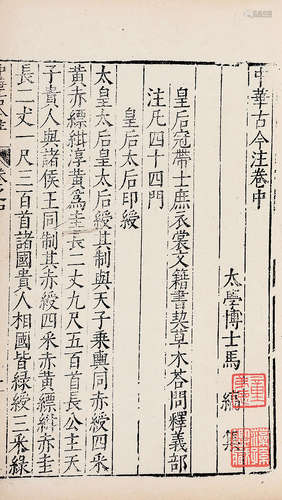 中華古今注卷中
太學博士馬 縞 集
皇后冠帶士庶衣裳文籍書契草木荅問釋義部
注凡四十四門
皇后太后印綬
太皇太后皇太后綬其制與天子乘輿同赤綬四采
黃赤縹紺淳黃爲圭長二丈九尺五百首長公主天
子貴人與諸侯王同制赤綬四采赤黃縹紺赤圭
長二丈一尺三百首諸國貴人相國皆綠綬三采綠